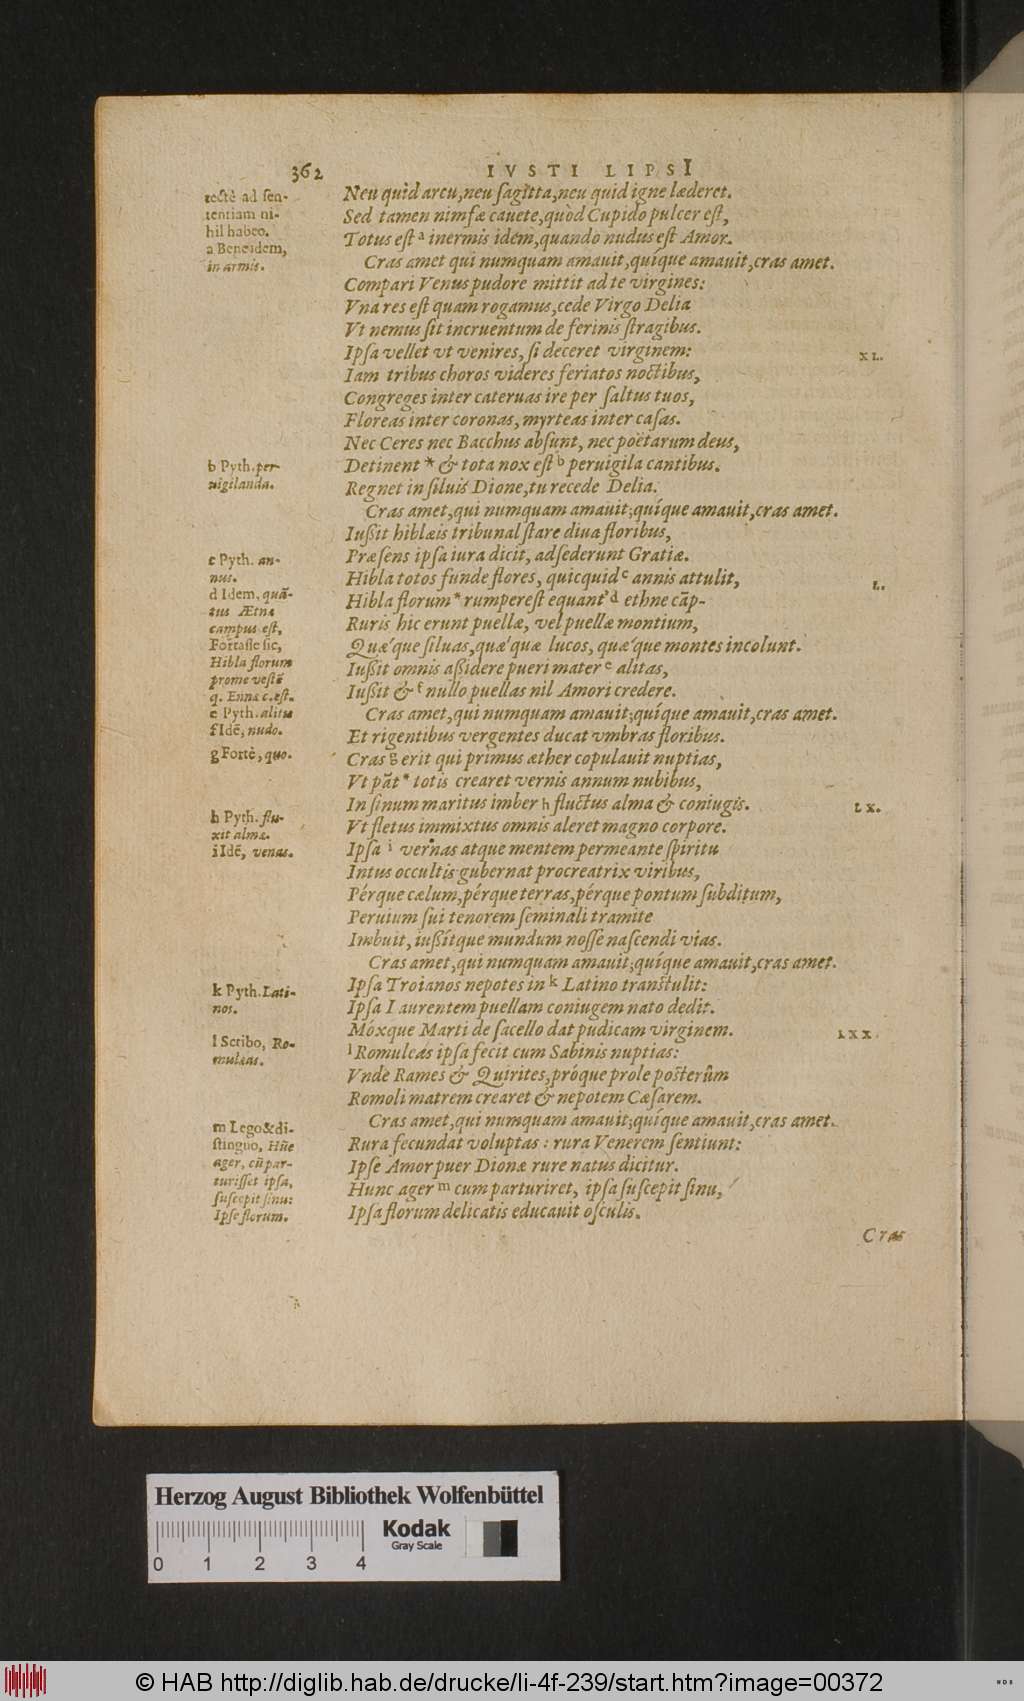 362
IVSTI LIPSI
rectè ad sen-
tentiam ni-
hil habeo.
a Bene idem,
in armis.
b Pyth. per-
uigilanda.
c Pyth. an-
nus.
d Idem, quā-
tus Ætnæ
campus est,
Fortasse sic,
Hibla florum
prome vestē
q. Ennæ c. est.
e Pyth. alitis
f Idē, nudo.
g Fortè, quo.
h Pyth. flu-
xit almæ.
i Idē, venas.
k Pyth. Lati-
nos.
l Scribo, Ro-
muleas.
m Lego & di-
stinguo, Hūc
ager, cū par-
turisset ipsa,
suscepit sinu:
Ipse florum.
Neu quid arcu, neu sagitta, neu quid igne læderet.
Sed tamen nimfæ cauete, quòd Cupido pulcer est,
Totus est a inermis idem, quando nudus est Amor.
Cras amet qui numquam amauit, quíque amauit, cras amet.
Compari Venus pudore mittit ad te virgines:
Vna res est quam rogamus, cede Virgo Delia
Vt nemus sit incruentum de ferinis stragibus.
Ipsa vellet vt venires, si deceret virginem:
XL.
Iam tribus choros videres feriatos noctibus,
Congreges inter cateruas ire per saltus tuos,
Floreas inter coronas, myrteas inter casas.
Nec Ceres nec Bacchus absunt, nec poëtarum deus,
Detinent * & tota nox est b peruigila cantibus.
Regnet in siluis Dione, tu recede Delia.
Cras amet, qui numquam amauit; quíque amauit, cras amet.
Iussit hiblæis tribunal stare diua floribus,
Præsens ipsa iura dicit, adsederunt Gratiæ.
Hibla totos funde flores, quicquid c annis attulit,
L.
Hibla florum * rumperest equant' d ethne cāp-
Ruris hic erunt puellæ, vel puellæ montium,
Quæ´que siluas, quæ´quæ lucos, quæ´que montes incolunt.
Iussit omnis assidere pueri mater e alitas,
Iussit & f nullo puellas nil Amori credere.
Cras amet, qui numquam amauit; quíque amauit, cras amet.
Et rigentibus vergentes ducat vmbras floribus.
Cras g erit qui primus æther copulauit nuptias,
Vt pāt * totis crearet vernis annum nubibus,
In sinum maritus imber h fluctus alma & coniugis.
LX.
Vt fletus immixtus omnis aleret magno corpore.
Ipsa i vernas atque mentem permeante spiritu
Intus occultis gubernat procreatrix viribus,
Pérque cælum, pérque terras, pérque pontum subditum,
Peruium sui tenorem seminali tramite
Imbuit, iussítque mundum nosse nascendi vias.
Cras amet, qui numquam amauit; quíque amauit, cras amet.
Ipsa Troianos nepotes in k Latino transtulit:
Ipsa Laurentem puellam coniugem nato dedit.
Móxque Marti de sacello dat pudicam virginem.
LXX.
l Romuleás ipsa fecit cum Sabinis nuptias:
Vnde Rames & Quirites, próque prole posterûm
Romoli matrem crearet & nepotem Cæsarem.
Cras amet, qui numquam amauit; quíque amauit, cras amet.
Rura fecundat voluptas: rura Venerem sentiunt:
Ipse Amor puer Dionæ rure natus dicitur.
Hunc ager m cum parturiret, ipsa suscepit sinu,
Ipsa florum delicatis educauit osculis.
Cras
Herzog August Bibliothek Wolfenbüttel
Kodak
Gray Scale
0 1 2 3 4
© HAB http://diglib.hab.de/drucke/li-4f-239/start.htm?image=00372